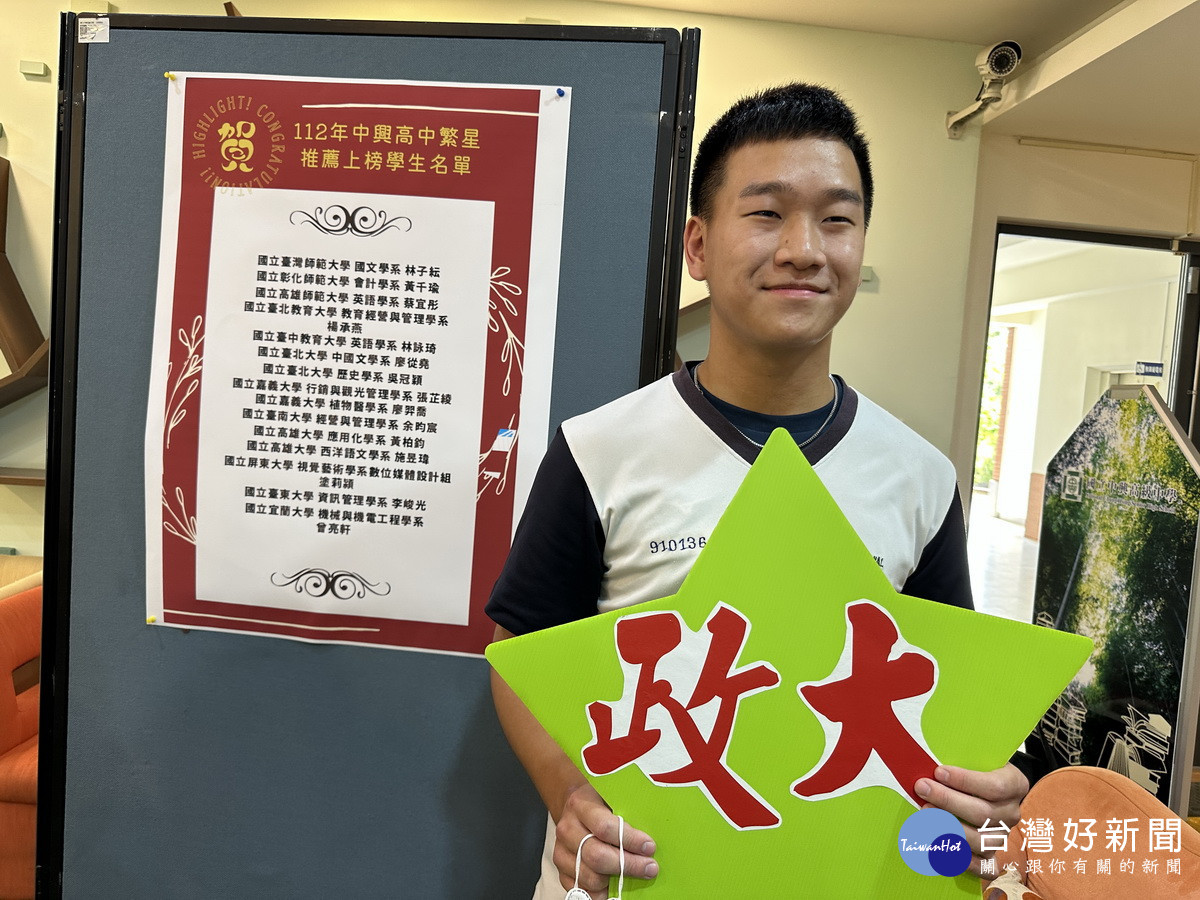 HIGHLIGHT! CONGRATULATION!
賀
112年中興高中繁星
推薦上榜學生名單
國立臺灣師範大學 國文學系 林子紜
國立彰化師範大學 會計學系 黃千瑜
國立高雄師範大學 英語學系 蔡宜彤
國立臺北教育大學 教育經營與管理學系
楊承燕
國立臺中教育大學 英語學系 林詠琦
國立臺北大學 中國文學系 廖從堯
國立臺北大學 歷史學系 吳冠穎
國立嘉義大學 行銷與觀光管理學系 張芷綾
國立嘉義大學 植物醫學系 廖羿喬
國立臺南大學 經營與管理學系 余昀宸
國立高雄大學 應用化學系 黃柏鈞
國立高雄大學 西洋語文學系 施昱瑋
國立屏東大學 視覺藝術學系數位媒體設計組
塗莉穎
國立臺東大學 資訊管理學系 李峻光
國立宜蘭大學 機械與機電工程學系
曾亮軒
910136
政大
國立中興高級中學
TaiwanHot
台灣好新聞
關心跟你有關的新聞